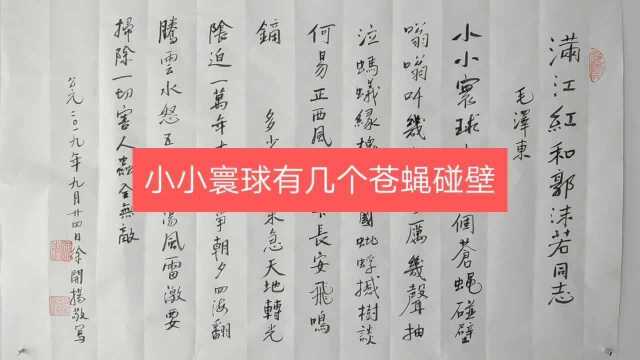 滿江紅和郭沫若同志
毛澤東
小小寰球 個蒼蠅碰壁
嗡嗡叫幾 厲幾聲抽
泣螞蟻緣 國蚍蜉撼樹談
何易正西風 長安飛鳴
鏑 多少 急天地轉光
陰迫一萬年 爭朝夕四海翻
騰雲水怒五 風雷激要
掃除一切害人蟲全無敵
公元二〇一九年九月廿四日徐開揚敬寫
小小寰球有几个苍蝇碰壁